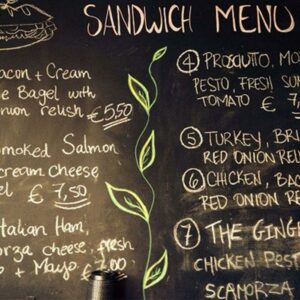 SANDWICH MENU
acon + Cream
e Bagel with
nion relish
€ 5,50
moked Salmon
cream cheese
el € 7,50
talian Ham,
orza cheese, fresh
o + Mayo € 7,00
④ PROSCIUTTO, MO
PESTO, FRESH SUN
TOMATO € 7
⑤ TURKEY, BR
RED ONION REL
⑥ CHICKEN, BAC
RED ONION RE
⑦ THE GINGE
CHICKEN PEST
SCAMORZA